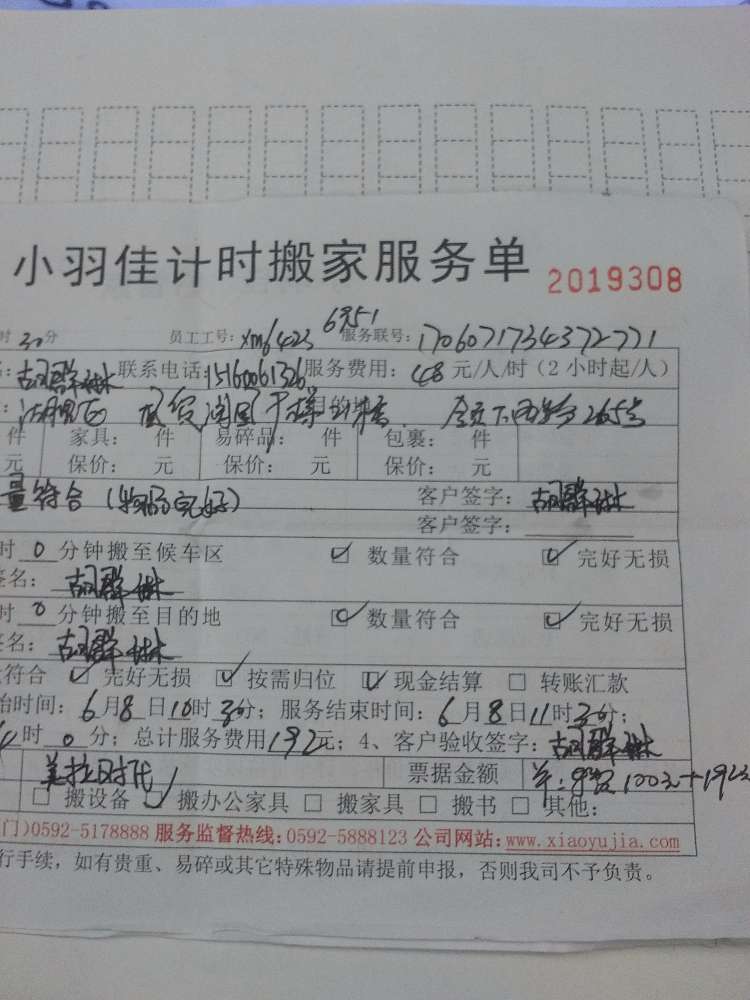 小羽佳计时搬家服务单 2019308
时 30 分 员工工号: xm6423 6951 服务联号: 1706071734372771
联系电话: 15160061326 服务费用: 48 元/人/时(2小时起/人)
目的地 265号
件 家具: 件 易碎品: 件 包裹: 件
元 保价: 元 保价: 元 保价: 元
量符合 (物品完好) 客户签字:
客户签字:
时 0 分钟搬至候车区 ☑ 数量符合 ☑ 完好无损
签名:
时 0 分钟搬至目的地 ☑ 数量符合 ☑ 完好无损
签名:
符合 ☑ 完好无损 ☑ 按需归位 ☑ 现金结算 □ 转账汇款
始时间: 6月8日10时30分; 服务结束时间: 6月8日11时30分;
4时 0 分; 总计服务费用192元; 4、客户验收签字:
美拉时代 票据金额 100元+192元
□ 搬设备 ☑ 搬办公家具 □ 搬家具 □ 搬书 □ 其他:
门)0592-5178888 服务监督热线:0592-5888123 公司网站:www.xiaoyujia.com
行手续,如有贵重、易碎或其它特殊物品请提前申报,否则我司不予负责。